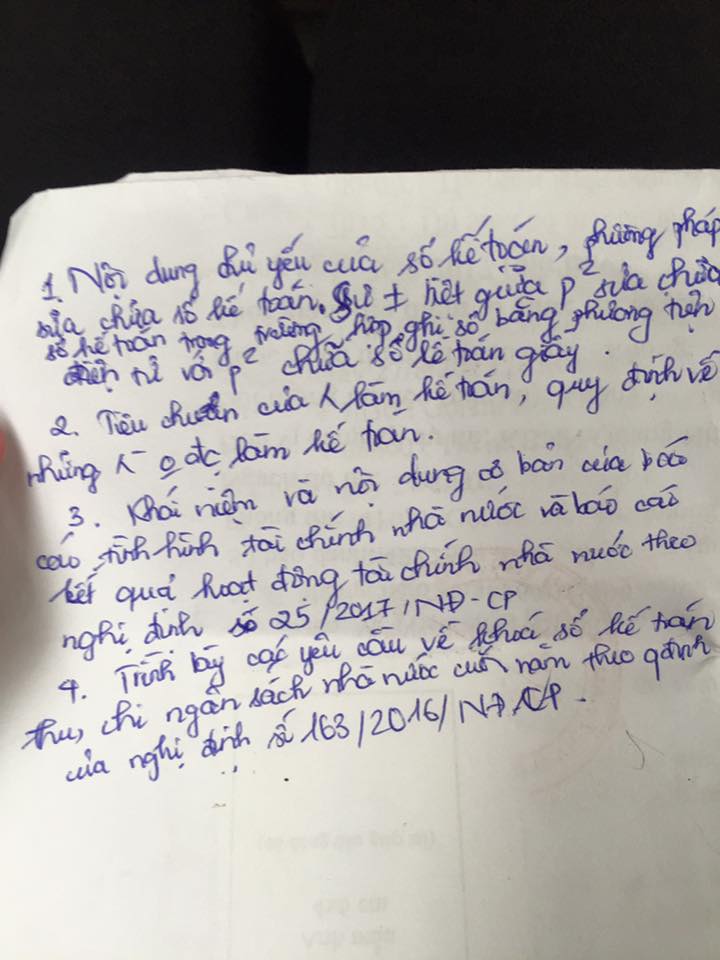 1. Nội dung chủ yếu của sổ kế toán, phương pháp
sửa chữa sổ kế toán. Sự ≠ biệt giữa p² sửa chữa
sổ kế toán trong trường hợp ghi sổ bằng phương tiện
điện tử với p² chữa sổ kế toán giấy.
2. Tiêu chuẩn của làm kế toán, quy định về
những đc làm kế toán.
3. Khái niệm và nội dung cơ bản của báo
cáo tình hình tài chính nhà nước và báo cáo
kết quả hoạt động tài chính nhà nước theo
nghị định số 25/2017/NĐ-CP
4. Trình bày các yêu cầu về khoá sổ kế toán
thu, chi ngân sách nhà nước cuối năm theo qđịnh
của nghị định số 163/2016/NĐ-CP.